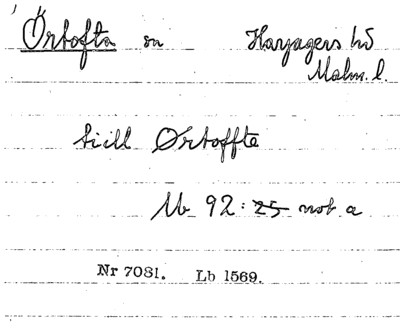 Örtofta sn Harjagers hd
Malm. l.
tiill Ørtoffte
Mb 92: 25 not a
Nr 7081. Lb 1569.